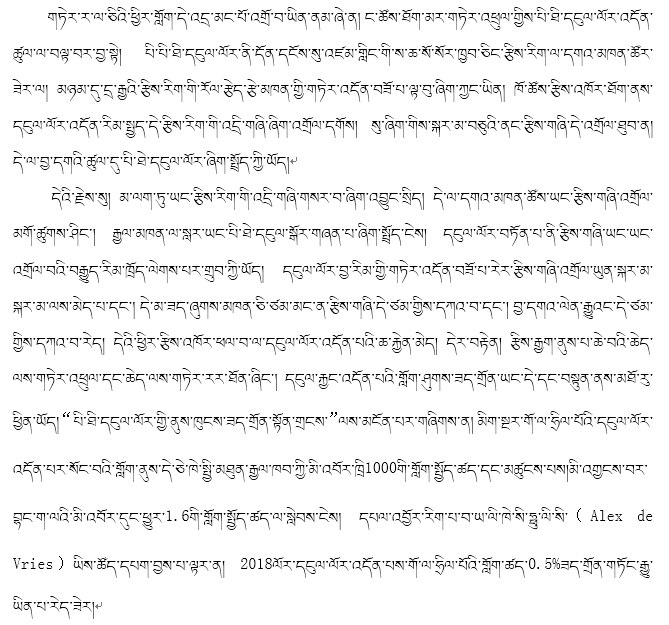 གཏེར་ར་ལ་ཅིའི་ཕྱིར་གློག་དེ་འདྲ་མང་པོ་འགྲོ་བ་ཡིན་ནམ་ཞེ་ན། ང་ཚོས་ཐོག་མར་གཏེར་འཕྲུལ་གྱིས་པི་ཐེ་དངུལ་ལོར་འདོན་
ཚུལ་ལ་བལྟ་བར་བྱ་སྟེ། པི་པི་ཐེ་དངུལ་ལོར་ནི་དོན་དངོས་སུ་འཛམ་གླིང་གི་ས་ཆ་སོ་སོར་ཁྱབ་ཅིང་རྩིས་རིག་ལ་དགའ་མཁན་ཚོར་
ཟེར་ལ། མཉམ་དུ་དྲ་རྒྱའི་རྩིས་རིག་གི་རོལ་རྩེད་རྩེ་མཁན་གྱི་གཏེར་འདོན་བཟོ་པ་ལྟ་བུ་ཞིག་ཀྱང་ཡིན། ཁོ་ཚོས་རྩིས་འཁོར་ཐོག་ནས་
དངུལ་ལོར་འདོན་རིམ་སྤྱད་དེ་རྩིས་རིག་གི་འདྲི་གཞི་ཞིག་འགྲོལ་དགོས། སུ་ཞིག་གིས་སྐར་མ་བཅུའི་ནང་རྩིས་གཞི་དེ་འགྲོལ་ཐུབ་ན།
དེ་ལ་བྱ་དགའི་ཚུལ་དུ་པི་ཐེ་དངུལ་ལོར་ཞིག་སྤྲོད་ཀྱི་ཡོད།
དེའི་རྗེས་སུ། མ་ལག་ཏུ་ཡང་རྩིས་རིག་གི་འདྲི་གཞི་གསར་བ་ཞིག་འབྱུང་སྲིད། དེ་ལ་དགའ་མཁན་ཚོས་ཡང་རྩིས་གཞི་འགྲོལ་
མགོ་ཚུགས་ཤིང་། རྒྱལ་མཁན་ལ་སླར་ཡང་པི་ཐེ་དངུལ་སྒོར་གཞན་པ་ཞིག་སྤྲོད་ངེས། དངུལ་ལོར་བཏོན་པ་ནི་རྩིས་གཞི་ཡང་ཡང་
འགྲོལ་བའི་བརྒྱུད་རིམ་ཁྲོད་ལེགས་པར་གྲུབ་ཀྱི་ཡོད། དངུལ་ལོར་བྱ་རིམ་གྱི་གཏེར་འདོན་བཟོ་པ་རེར་རྩིས་གཞི་འགྲོལ་ཡུན་སྐར་མ་
སྐར་མ་ལས་མེད་པ་དང་། དེ་མ་ཟད་ཞུགས་མཁན་ཅི་ཙམ་མང་ན་རྩིས་གཞི་དེ་ཙམ་གྱིས་དཀའ་བ་དང་། བྱ་དགའ་ལེན་རྒྱུའང་དེ་ཙམ་
གྱིས་དཀའ་བ་རེད། དེའི་ཕྱིར་རྩིས་འཁོར་ཕལ་བ་ལ་དངུལ་ལོར་འདོན་པའི་ཆ་རྐྱེན་མེད། དེར་བརྟེན། རྩིས་རྒྱག་ནུས་པ་ཆེ་བའི་ཆེད་
ལས་གཏེར་འཕྲུལ་དང་ཆེད་ལས་གཏེར་རར་ཐོན་ཞིང་། དངུལ་རྐྱང་འདོན་པའི་གློག་ཤུགས་ཟད་གྲོན་ཡང་དེ་དང་བསྟུན་ནས་མཐོ་རུ་
ཕྱིན་ཡོད། “པི་ཐེ་དངུལ་ལོར་གྱི་ནུས་ཁུངས་ཟད་གྲོན་སྟོན་གྲངས་”ལས་མངོན་པར་གཞིགས་ན། མིག་སྔར་གོ་ལ་ཧྲིལ་པོའི་དངུལ་ལོར་
འདོན་པར་སོང་བའི་གློག་ནུས་དེ་ཅེ་ཁེ་སྤྱི་མཐུན་རྒྱལ་ཁབ་ཀྱི་མི་འབོར་ཁྲི1000གི་གློག་སྤྱོད་ཚད་དང་མཚུངས་པས།མི་འགྱངས་བར་
བྷང་ག་ལའི་མི་འབོར་དུང་ཕྱུར་1.6གི་གློག་སྤྱོད་ཚད་ལ་སླེབས་ངེས། དཔལ་འབྱོར་རིག་པ་བ་ཡ་ལི་ཁེ་སི་ཧྥུ་ལི་སི་ ( Alex de
Vries ) ཡིས་ཚོད་དཔག་བྱས་པ་ལྟར་ན། 2018ལོར་དངུལ་ལོར་འདོན་པས་གོ་ལ་ཧྲིལ་པོའི་གློག་ཚད་0.5%ཟད་གྲོན་གཏོང་རྒྱུ་
ཡིན་པ་རེད་ཟེར།